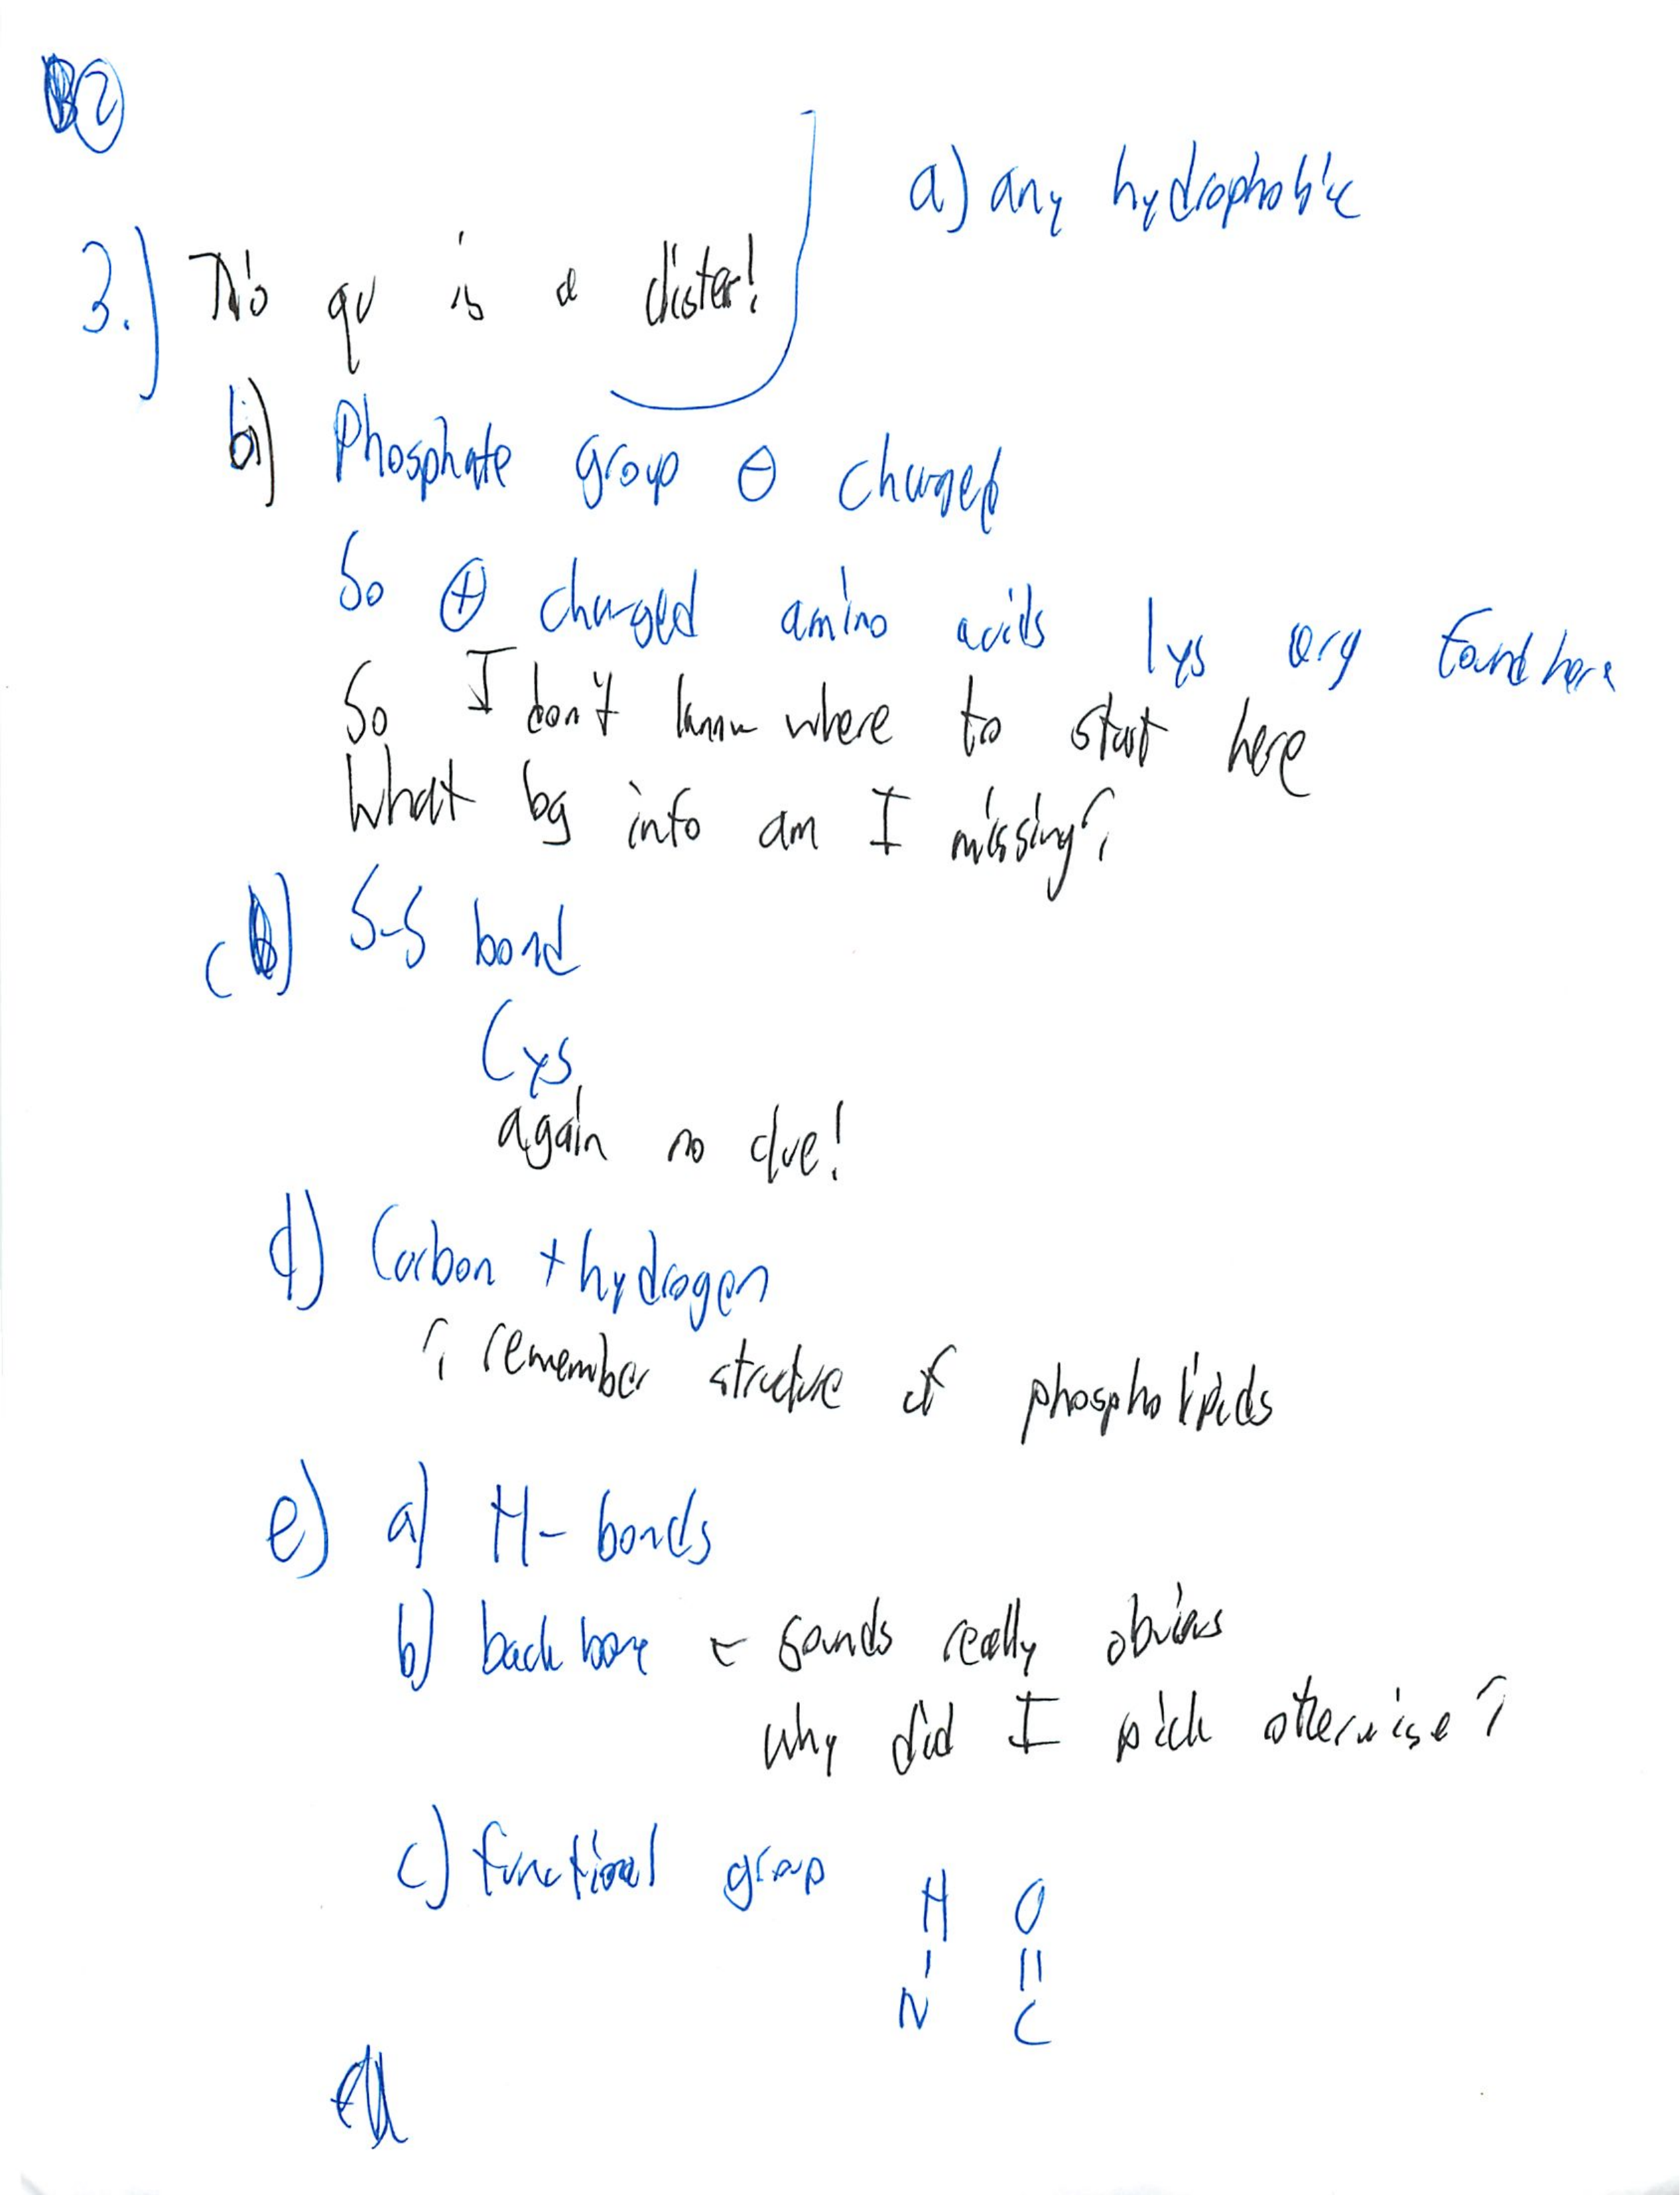 2
a) any hydrophobic
3.) This qu is a dister!
b) Phosphate group ⊖ charged
So ⊕ charged amino acids lys arg found here
So I don't know where to start here
What bg info am I missing?
c) S-S bond
Cys
again no clue!
d) Carbon + hydrogen
? remember structure of phospholipids
e) a) H- bonds
b) back bone ← sounds really obvious
why did I pick otherwise?
c) functional group
H O
| ||
N C